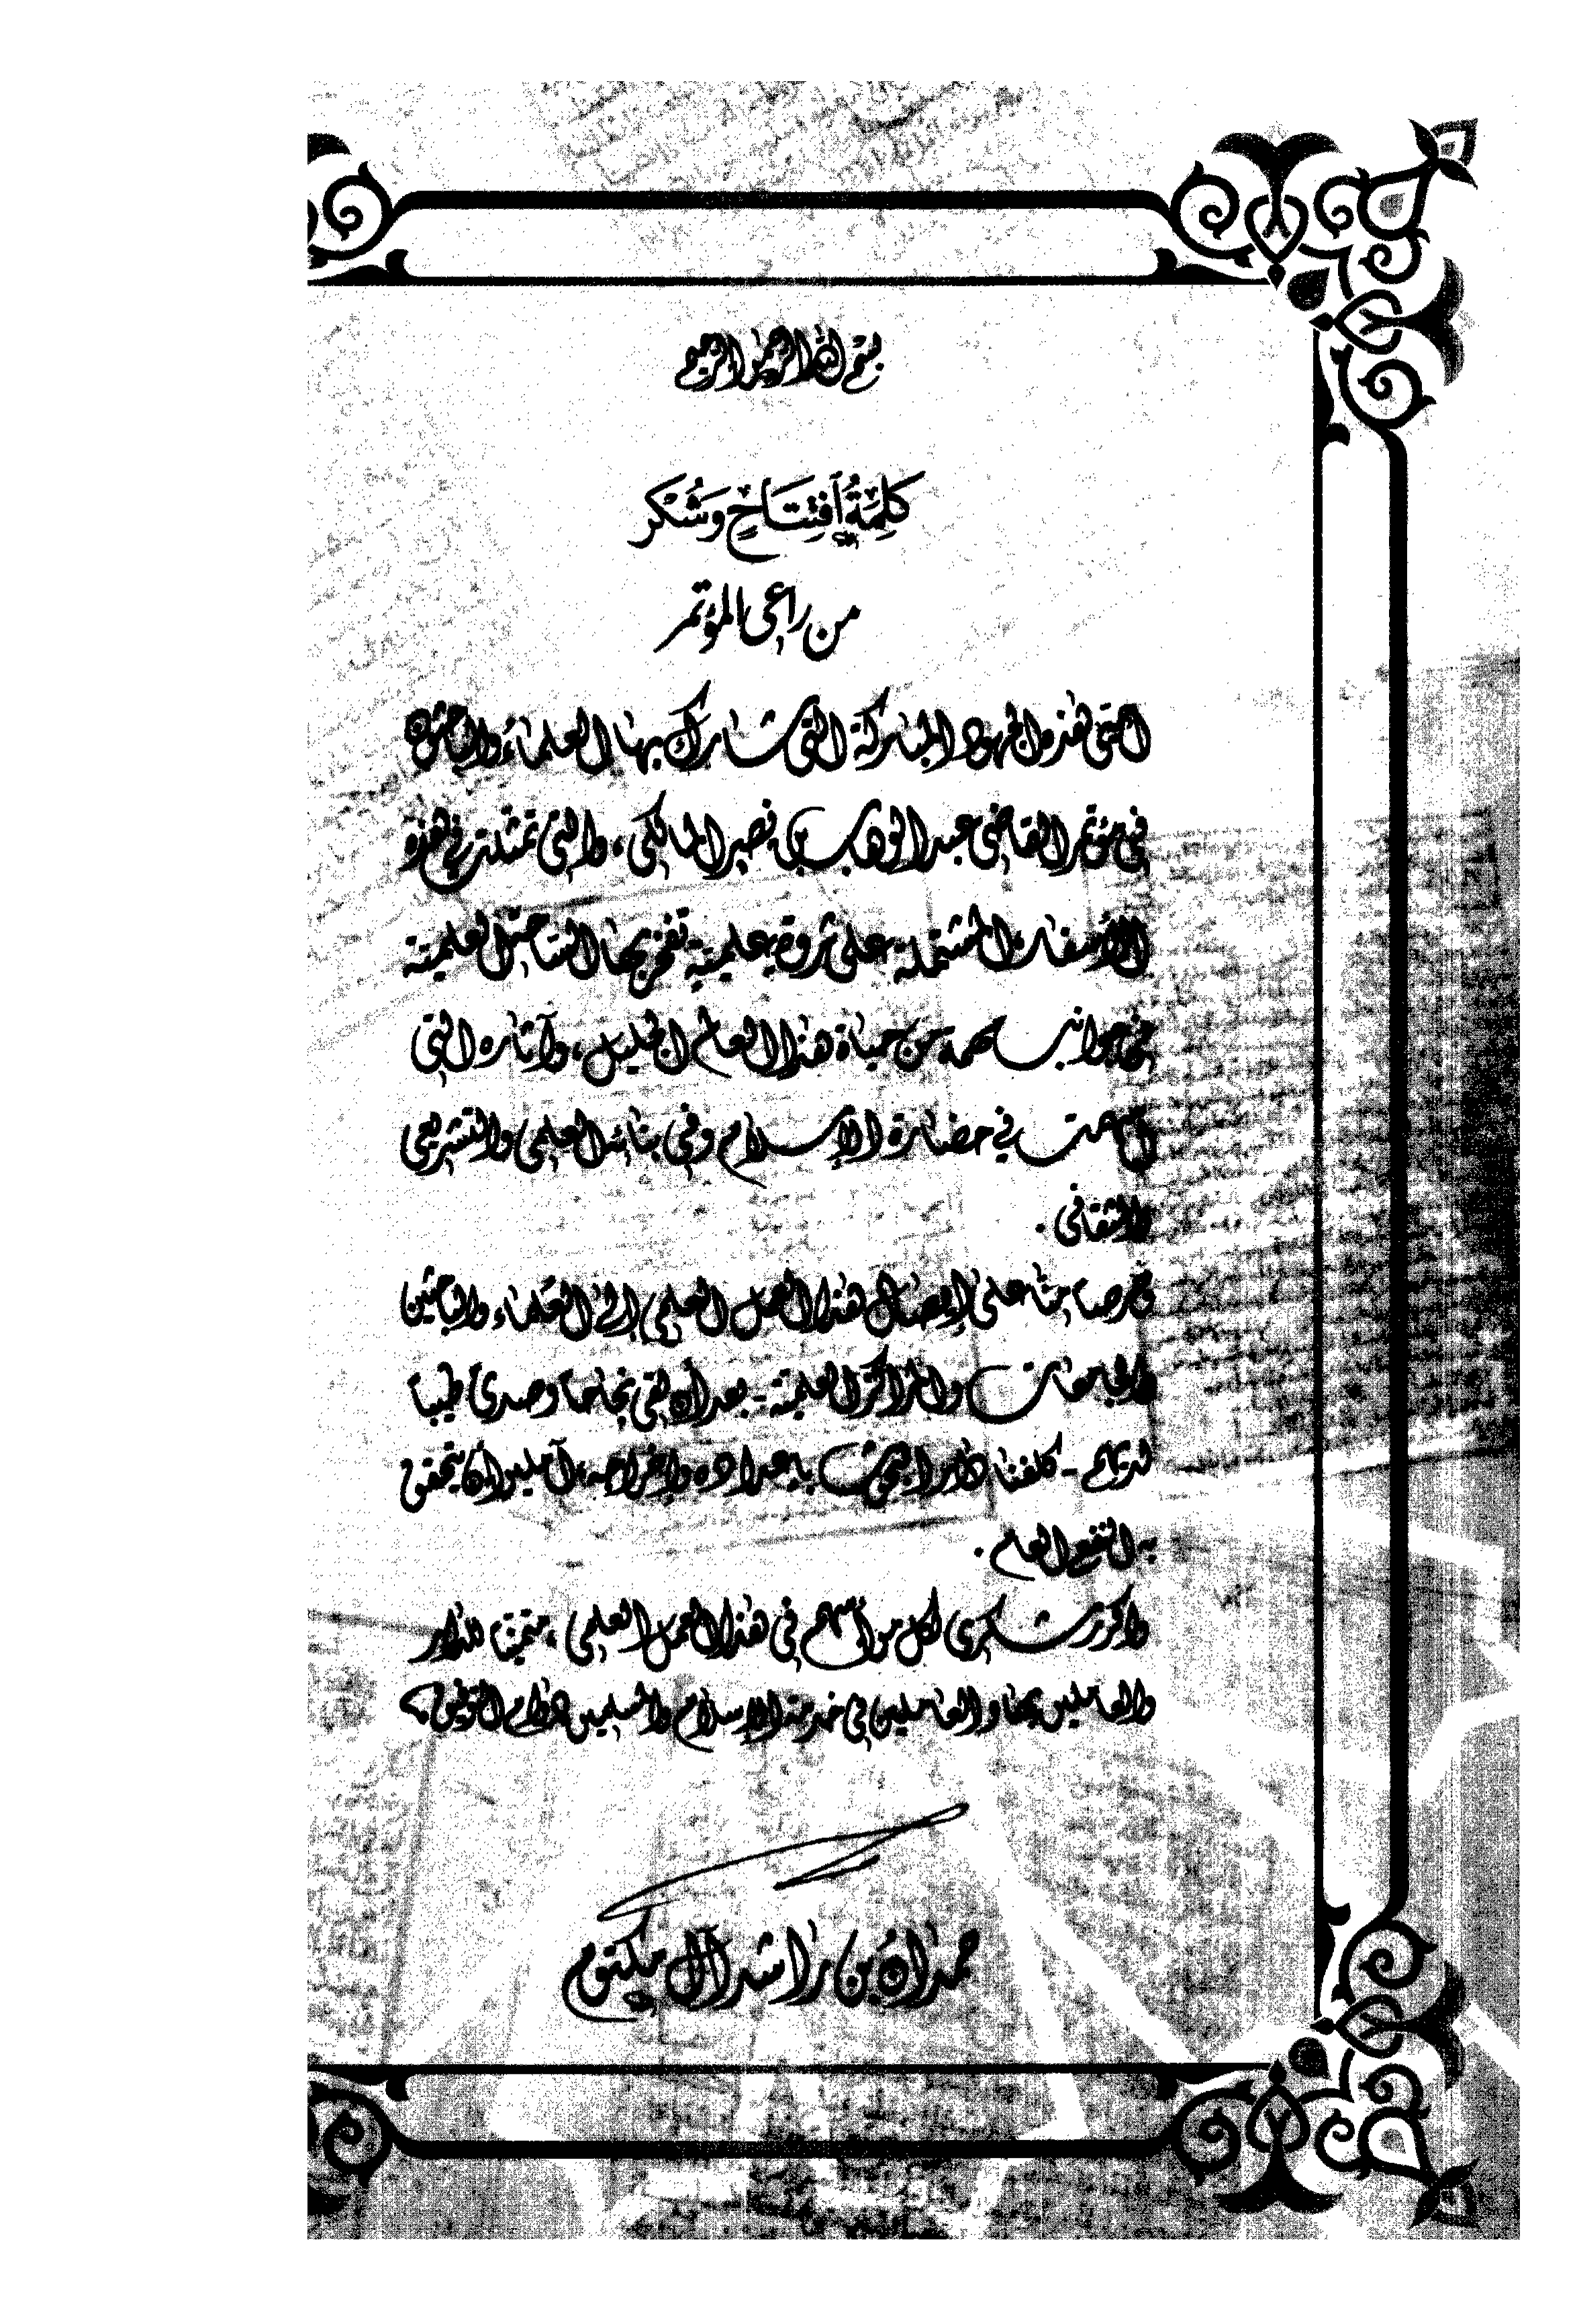 بسم الله الرحمن الرحيم
كَلِمَةُ اَفتِتَاحٍ وَشُكْر
من راعي المؤتمر
هذه الجهود المباركة التي شارك بها العلماء والباحثون
في مؤتمر القاضي عبد الوهاب بن نصر المالكي، والتي تمثلت في هذه
الأسفار المشتملة على ثروة علمية تفخر بها الساحة العلمية
في جوانب مهمة من حياة هذا العالم الجليل، وآثاره التي
أسهمت في حضارة الإسلام وفي بنائه العلمي والتشريعي
والثقافي.
وحرصا منا على إيصال هذا العمل العلمي إلى العلماء والباحثين
والجامعات والمراكز العلمية - بعد أن لقي نجاحا وصدى طيبا
لديهم - كلفنا دار البحوث بإعداده وإخراجه، آملين أن يتحقق
به النفع العام.
وأكرر شكري لكل من أسهم في هذا العمل العلمي، متمنيا للدار
والعاملين بها والعاملين في خدمة الإسلام والمسلمين دوام التوفيق
حمدان بن راشد آل مكتوم